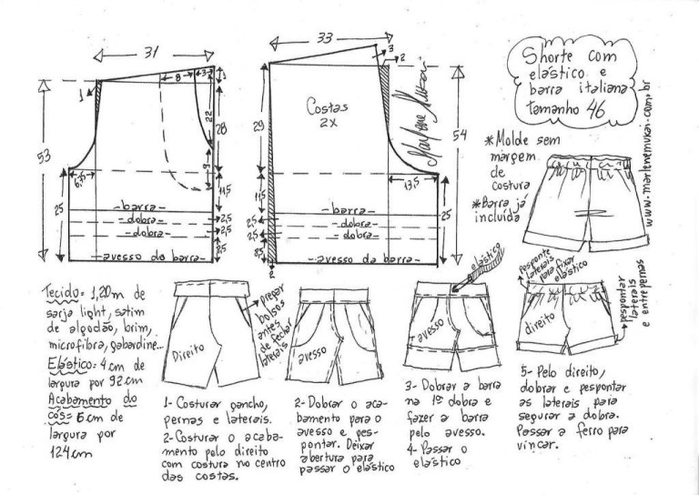 31
33
Shorte com
elástico e
barra italiana
tamanho 46
www.marlenemukai.com.br
1
8
3
1
22
28
9
53
6,5
11,5
25
-barra-
-dobra-
-dobra-
-avesso da barra-
2,5
2,5
25
3
2
Costas
2x
Marlene Mukai
29
54
13,5
11,5
25
-barra-
-dobra-
-dobra-
-avesso da barra-
2,5
2,5
25
2
*Molde sem
margem
de
costura
*Barra já
incluída
Tecido= 1,20m de
sarja light, satim
de algodão, brim,
microfibra, gabardine...
Elástico= 4cm de
largura por 92cm
Acabamento do
cós= 6cm de
largura por
124cm
Direito
Pregar
bolsos
antes
de fechar
laterais
1- Costurar gancho,
pernas e laterais.
2- Costurar o acaba-
mento pelo direito
com costura no centro
das costas.
avesso
2- Dobrar o aca-
bamento para o
avesso e pes-
pontar. Deixar
abertura para
passar o elástico
elástico
avesso
3- Dobrar a barra
na 1ª dobra e
fazer a barra
pelo avesso.
4- Passar o
elástico
Pesponte
laterais
para fixar
elástico
direito
pespontar
laterais
e entrepernas
5- Pelo direito,
dobrar e pespontar
as laterais para
segurar a dobra.
Passar a ferro para
vincar.